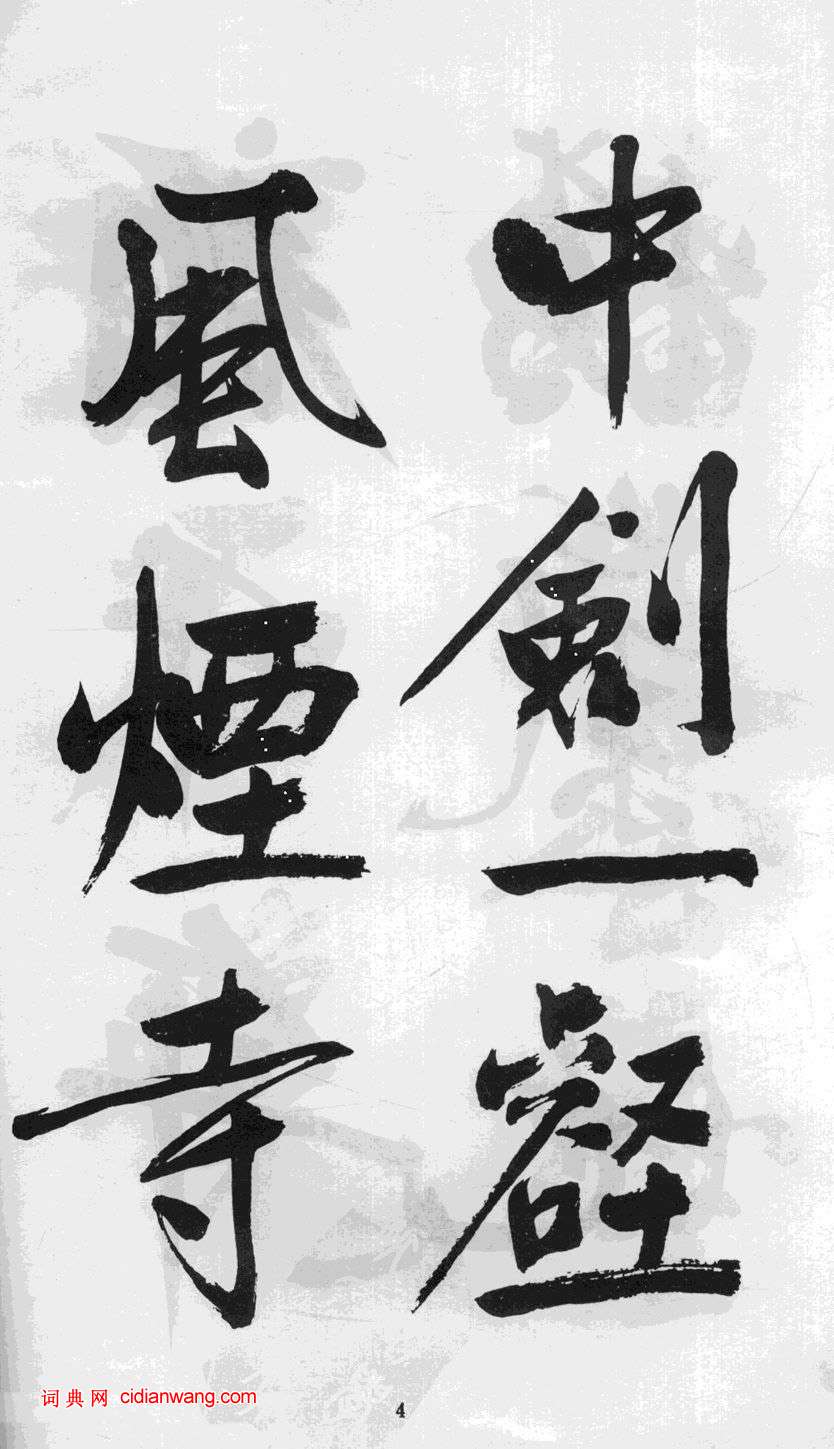 中劍一壑
風煙寺
词典网 cidianwang.com
4